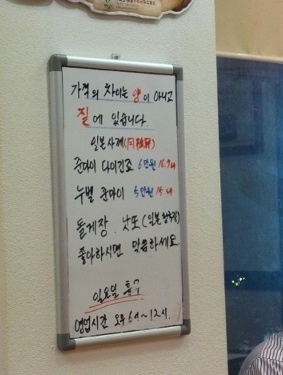 가격의 차이는 양이 아니고
질에 있습니다.
일본사케
준마이 다이긴죠 6만원
누벨 준마이 5만원
돌게장. 낫또(일본청국장)
좋아하시면 말씀하세요
일요일 휴무
영업시간 오후 6시~12시.